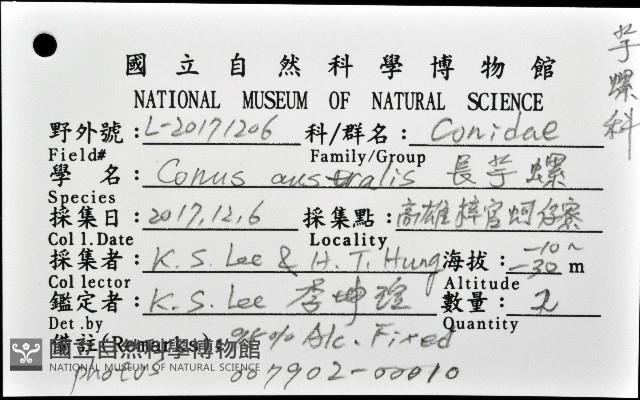 芋螺科
國立自然科學博物館
NATIONAL MUSEUM OF NATURAL SCIENCE
野外號: L-20171206 科/群名: Conidae
Field# Family/Group
學名: Conus australis 長芋螺
Species
採集日: 2017,12,6 採集點: 高雄梓官蚵仔寮
Coll.Date Locality
採集者: K. S. Lee & H. T. Hung 海拔: -10~-30 m
Collector Altitude
鑑定者: K. S. Lee 李坤瑄 數量: 2
Det.by Quantity
備註(Remarks): 95% Alc. Fixed
國立自然科學博物館
NATIONAL MUSEUM OF NATURAL SCIENCE
photos 007902-00010